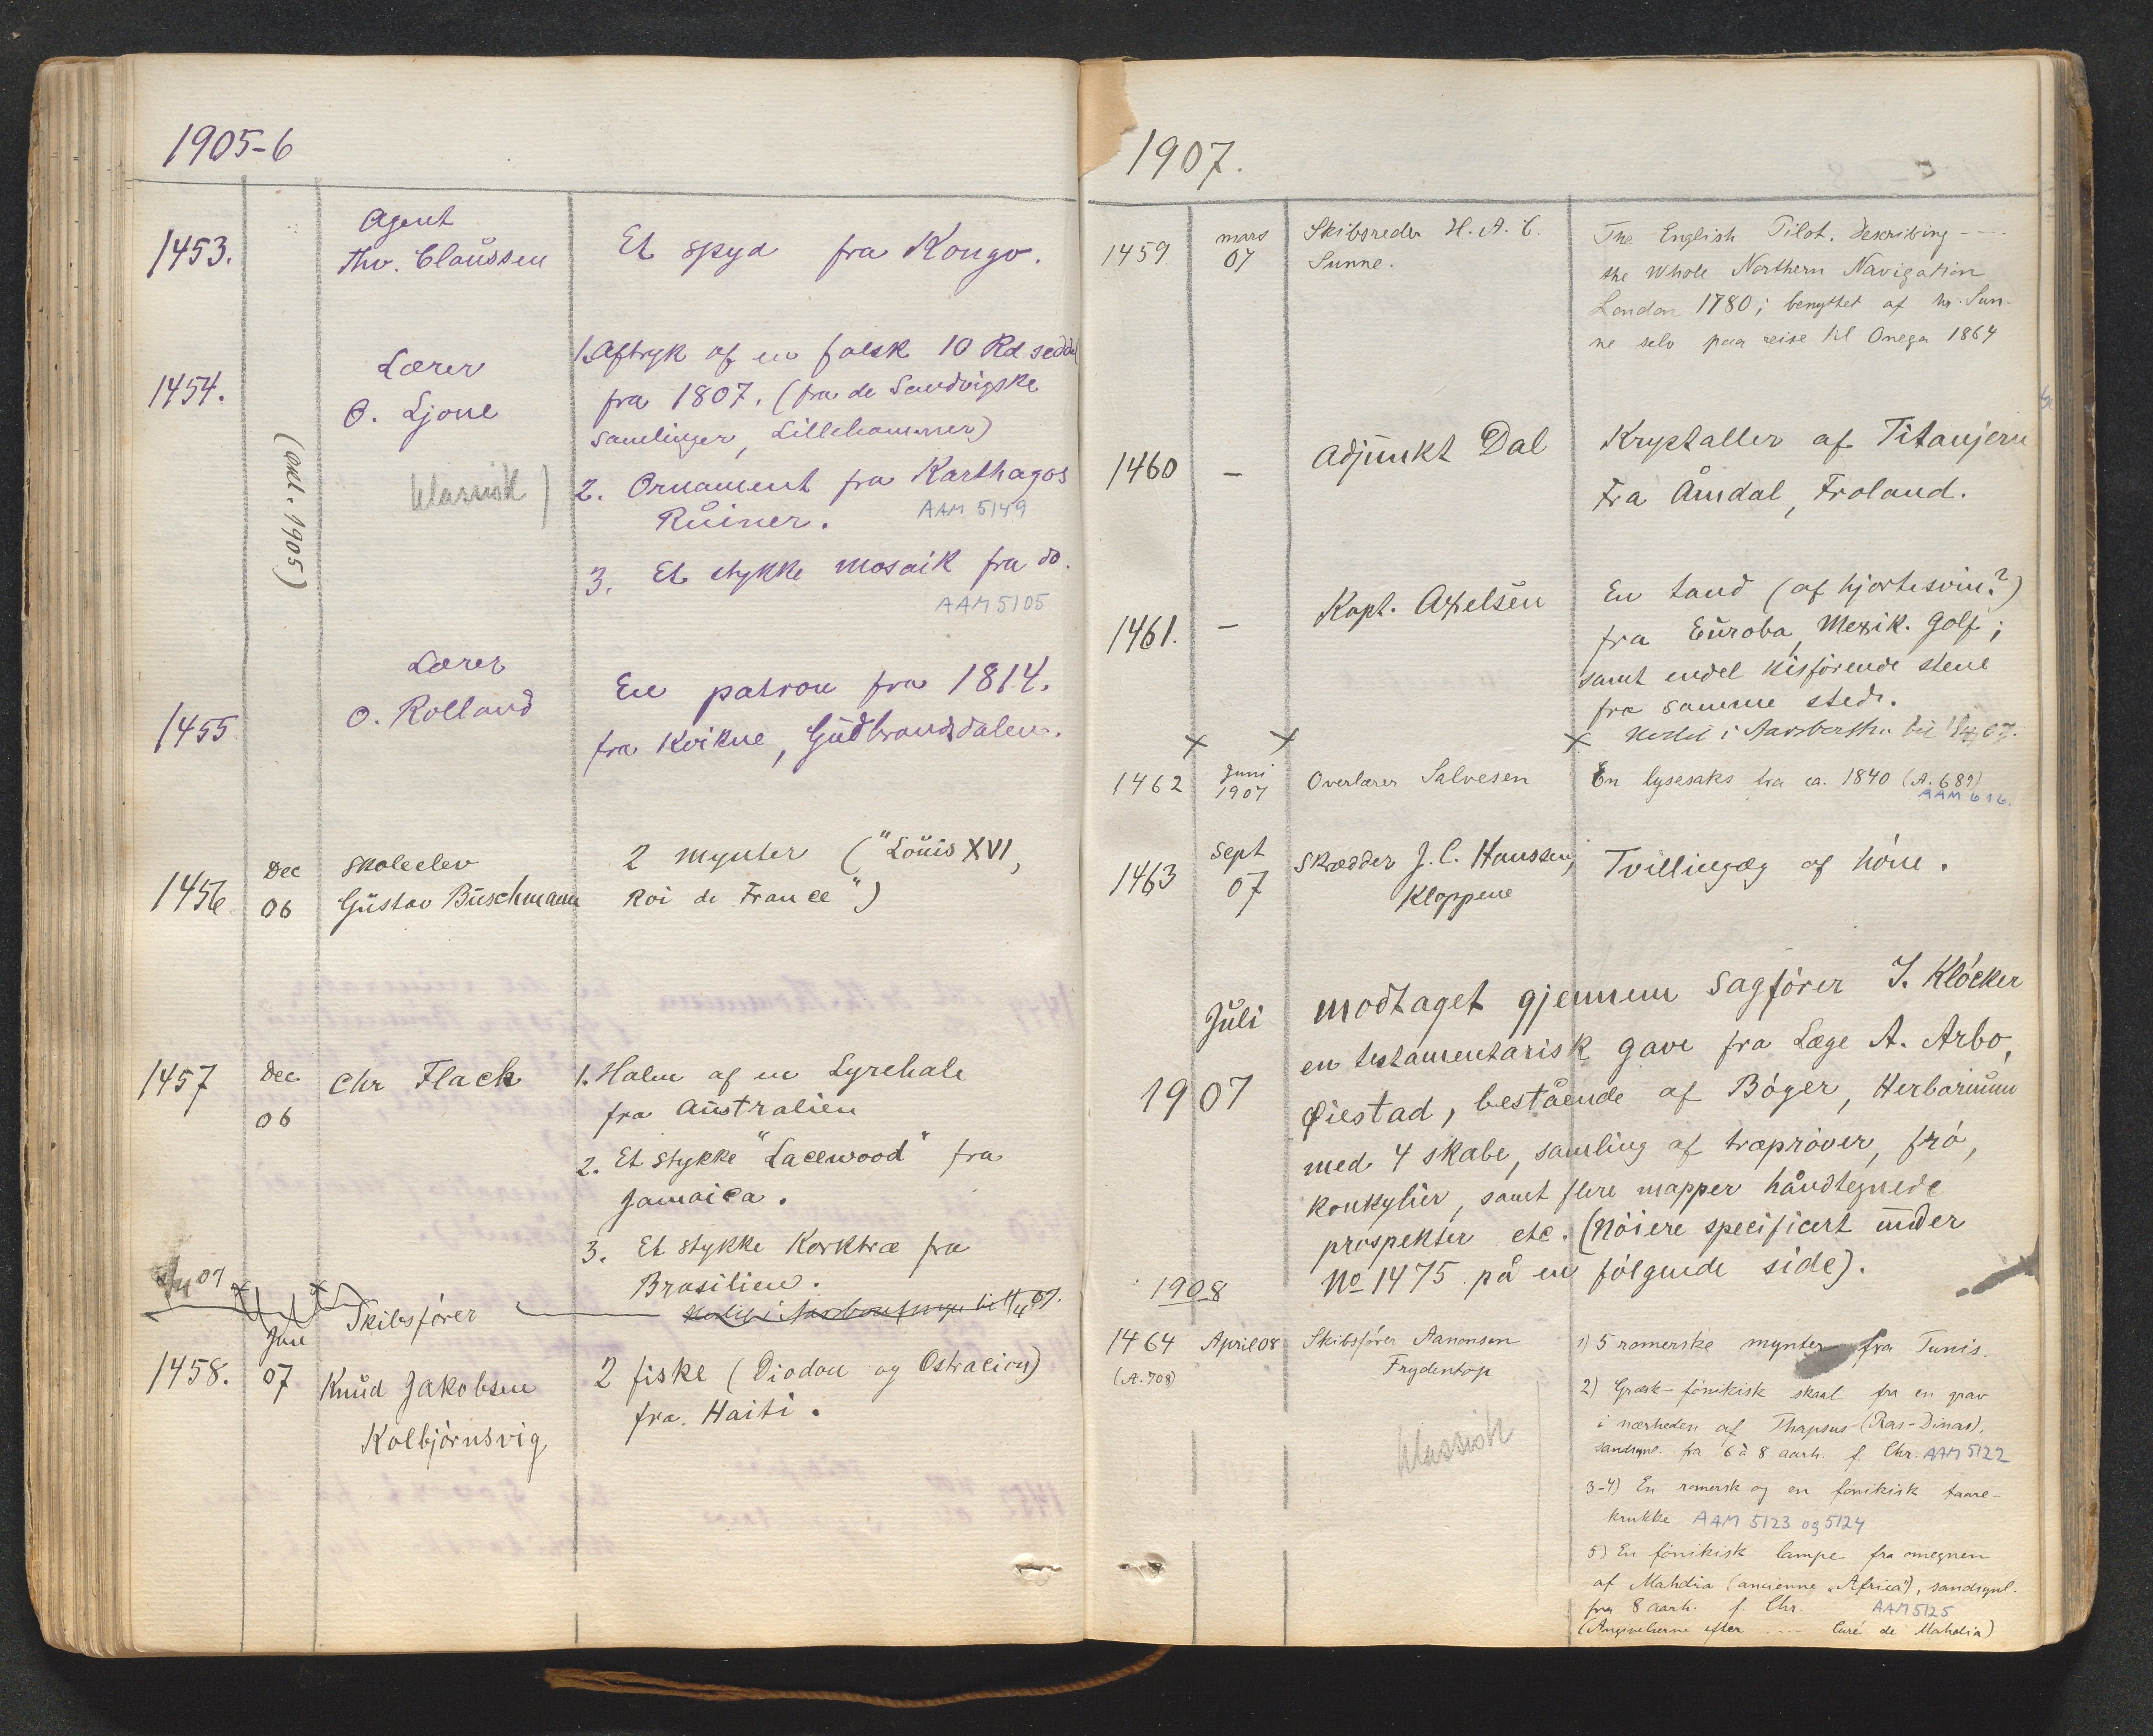 1905-6
1453.
Agent
Thv. Claussen
Et spyd fra Kongo.
1454.
(okt. 1905)
Lærer
O. Ljone
1. Aftryk af en falsk 10 Rd. seddel
fra 1807. (fra de Sandvigske
samlinger, Lillehammer)
klassisk)
2. Ornament fra Karthagos
Ruiner.
AAM 5149
3. Et stykke mosaik fra do.
AAM 5105
1455
Lærer
O. Rolland
En patron fra 1814.
fra Kvikne, Gudbrandsdalen.
1456
Dec
06
Skoleelev
Gustav Buschmann
2 mynter ("Louis XVI,
Roi de France")
1457
Dec
06
Chr Flack
1. Halen af en Lyrehale
fra Australien
2. Et stykke "Lacewood" fra
Jamaica.
3. Et stykke Korktræ fra
Brasilien.
07
1458.
Jan
07
Skibsfører
Knud Jakobsen
Kolbjørnsvig
2 fiske (Diodon og Ostracion)
fra Haiti.
1907.
1459
mars
07
Skibsreder H. A. C.
Sunne.
The English Pilot. Describing ----
the Whole Northern Navigation
London 1780; benyttet af hr. Sun-
ne selv paa reise til Onega 1864
1460
—
Adjunkt Dal
Krystaller af Titanjern
Fra Åmdal, Froland.
1461.
—
Kapt. Axelsen
En tand (af hjortesvin?)
fra Euroba, Mexik. Golf;
samt endel kisførende stene
fra samme sted.
1462
Juni
1907
Overlærer Salvesen
En lysesaks fra ca. 1840 (A. 689)
AAM 616.
1463
Sept
07
Skrædder J. C. Hanssen,
Kloppene
Tvillingæg af høne.
Juli
1907
Modtaget gjennem Sagfører J. Kløcker
en testamentarisk gave fra Læge A. Arbo,
Øiestad, bestående af Bøger, Herbarium
med 4 skabe, samling af træprøver, frø,
konkylier, samt flere mapper håndtegnede
prospekter etc. (Nøiere specificert under
No 1475 på en følgende side).
1908
1464
(A. 708)
April 08
Skibsfører Aanonsen
Frydentop
klassisk
1) 5 romerske mynter fra Tunis.
2) Græsk-fønikisk skaal fra en grav
i nærheden af Thapsus (Ras-Dinas),
sandsynl. fra 6 à 8 aarh. f. Chr. AAM 5122
3-4) En romersk og en fønikisk taare-
krukke AAM 5123 og 5124
5) En fønikisk lampe fra omegnen
af Mahdia (ancienne „Africa"), sandsynl.
fra 8 aarh. f. Chr. AAM 5125
(Angivelserne efter ---- Curé de Mahdia)